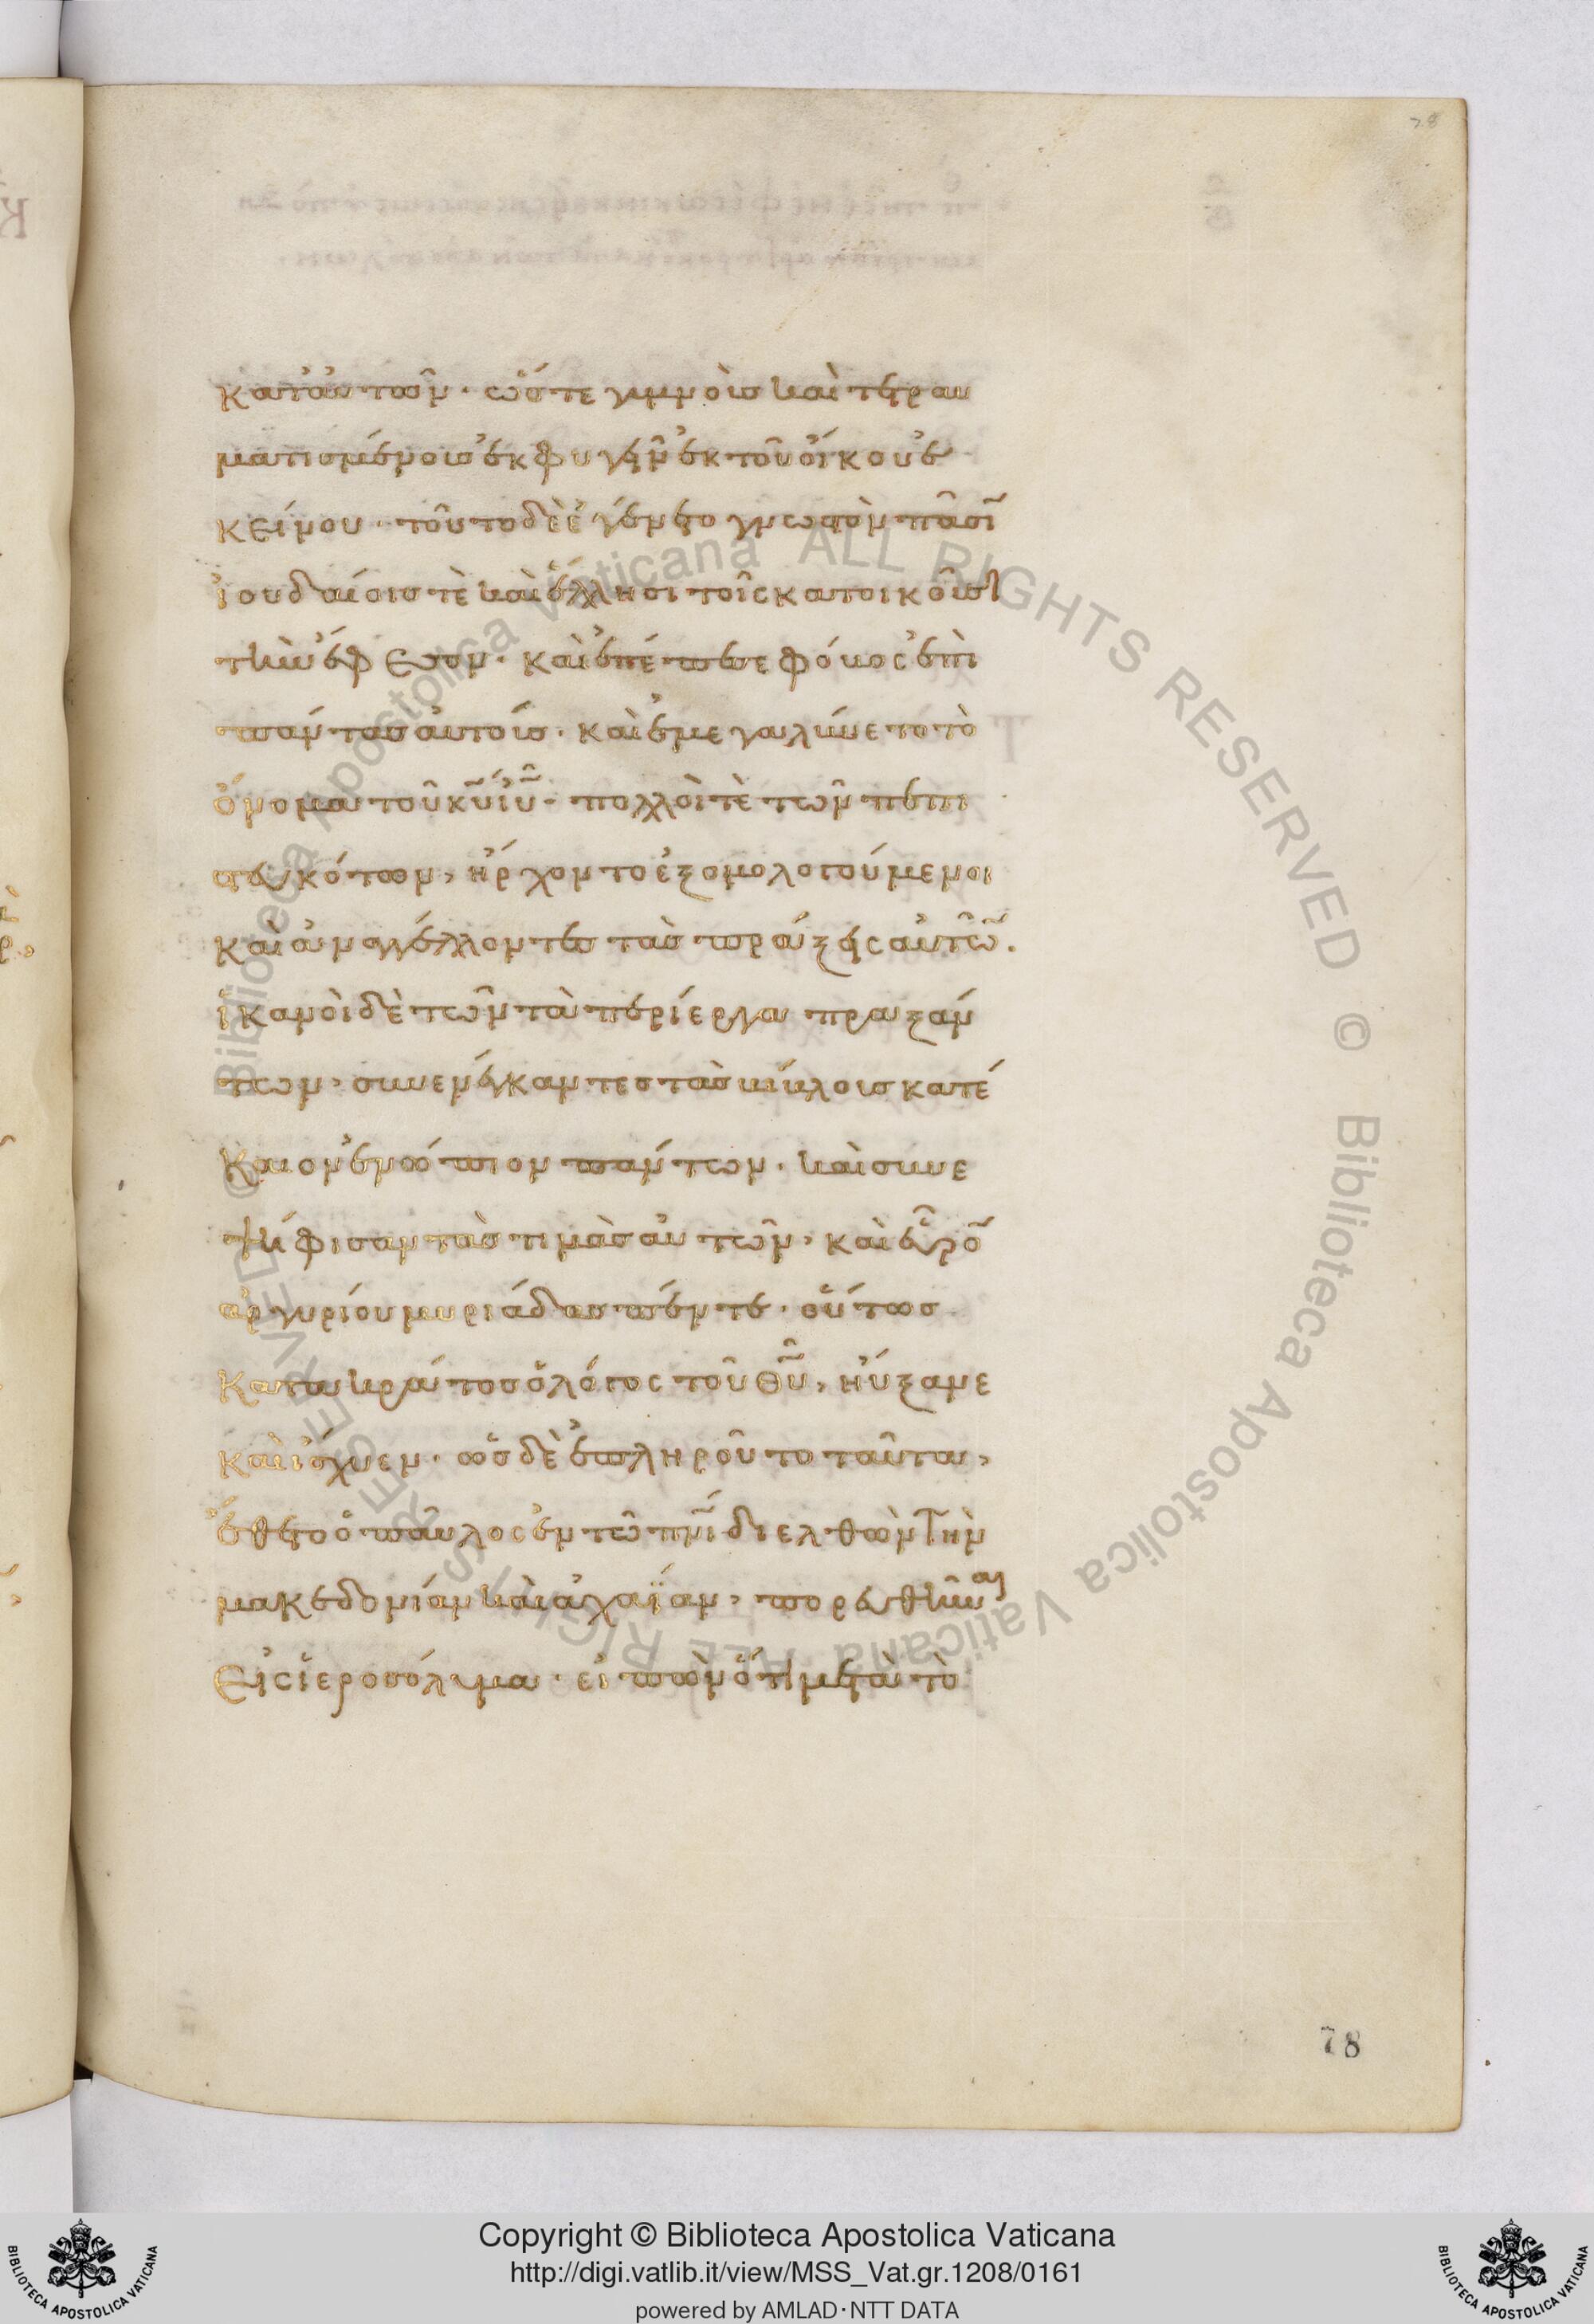 78
κατ' αὐτῶν· ὥστε γυμνοὺς καὶ τετραυ
ματισμένους ἐκφυγεῖν ἐκ τοῦ οἴκου ἐ
κείνου· τοῦτο δὲ ἐγένετο γνωστὸν πᾶσῖ
ἰουδαίοις τὲ καὶ ἕλλησι τοῖς κατοικοῦσι
τὴν ἔφεσον· καὶ ἐπέπεσε φόβος ἐπὶ
πάντας αὐτούς· καὶ ἐμεγαλύνετο τὸ
ὄνομα τοῦ κ̅υ̅ ἰ̅υ̅· πολλοὶ τὲ τῶν πεπι
στευκότων, ἤρχοντο ἐξομολογούμενοι
καὶ ἀναγγέλλοντες τὰς πράξεις αὐτῶ̅.
ἱκανοὶ δὲ τῶν τὰ περίεργα πραξάν
των, συνενέγκαντες τὰς βίβλους κατέ
καιον ἐνώπιον πάντων· καὶ συνε
ψήφισαν τὰς τιμὰς αὐτῶν, καὶ εὗρο̅
ἀργυρίου μυριάδας πέντε· οὕτως
κατα κράτος ὁ λόγος τοῦ θ̅υ̅, ηὔξανε
καὶ ἴσχυεν· ὡς δὲ ἐπληροῦτο ταῦτα,
ἔθετο ὁ παῦλος ἐν τῶ π̅ν̅ι̅ διελθὼν τὴν
μακεδονίαν καὶ ἀχαΐαν, πορευθῆναι
εἰς ἱεροσόλυμα· εἰπὼν ὅτι μετὰ τὸ
78
Biblioteca Apostolica Vaticana ALL RIGHTS RESERVED © Biblioteca Apostolica Vaticana ALL RIGHTS RESERVED ©
Copyright © Biblioteca Apostolica Vaticana
http://digi.vatlib.it/view/MSS_Vat.gr.1208/0161
powered by AMLAD·NTT DATA
BIBLIOTECA APOSTOLICA VATICANA
BIBLIOTECA APOSTOLICA VATICANA